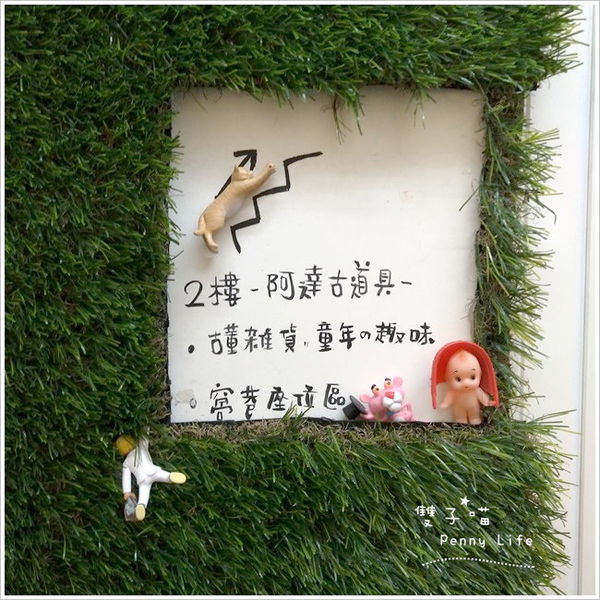 2樓-阿達古道具-
•古董雜貨,,童年の趣味
•窩巷座位區
雙子喵
Penny Life